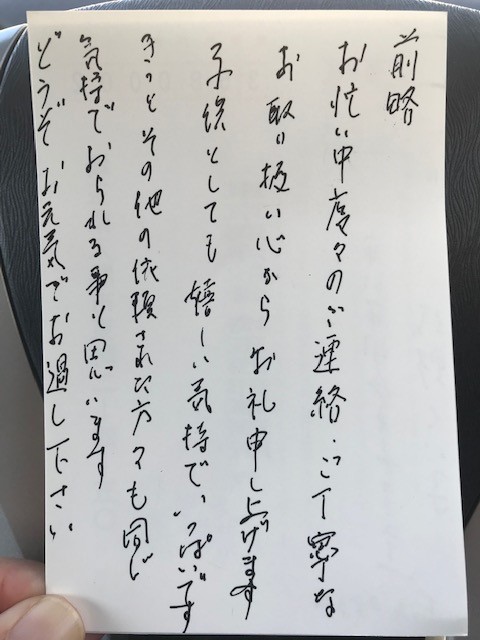 前略
お忙い中度々のご連絡、ご丁寧な
お取り扱い心からお礼申し上げます
子孫としても嬉しい気持でいっぱいです
きっとその他の依頼された方々も同じ
気持でおられる事と思います
どうぞお元気でお過し下さい